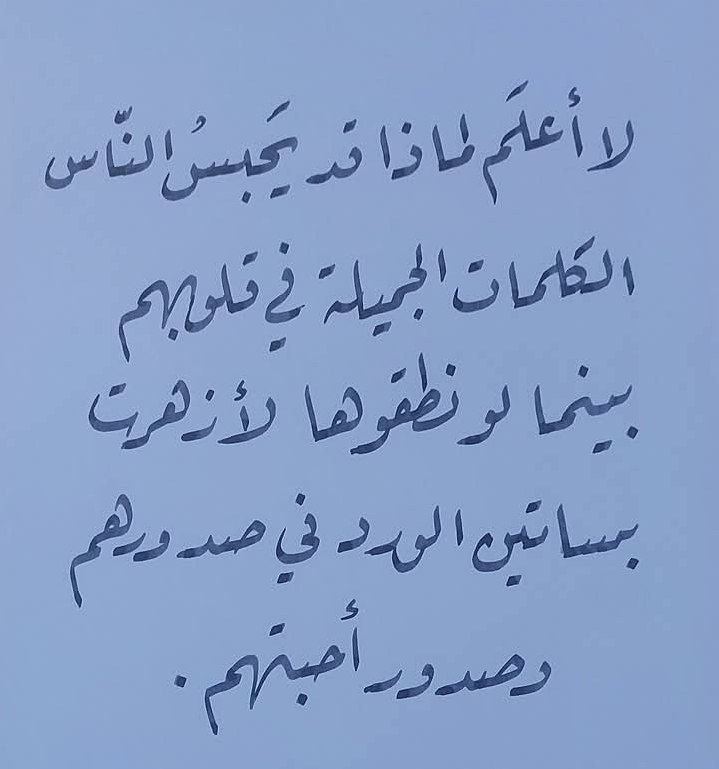 لا أعلَم لماذا قد يَحبسُ النّاس
الكلمات الجميلة في قلوبهم
بينما لو نطقوها لأزهرت
بساتين الورد في صدورهم
وصدور أحبتهم .